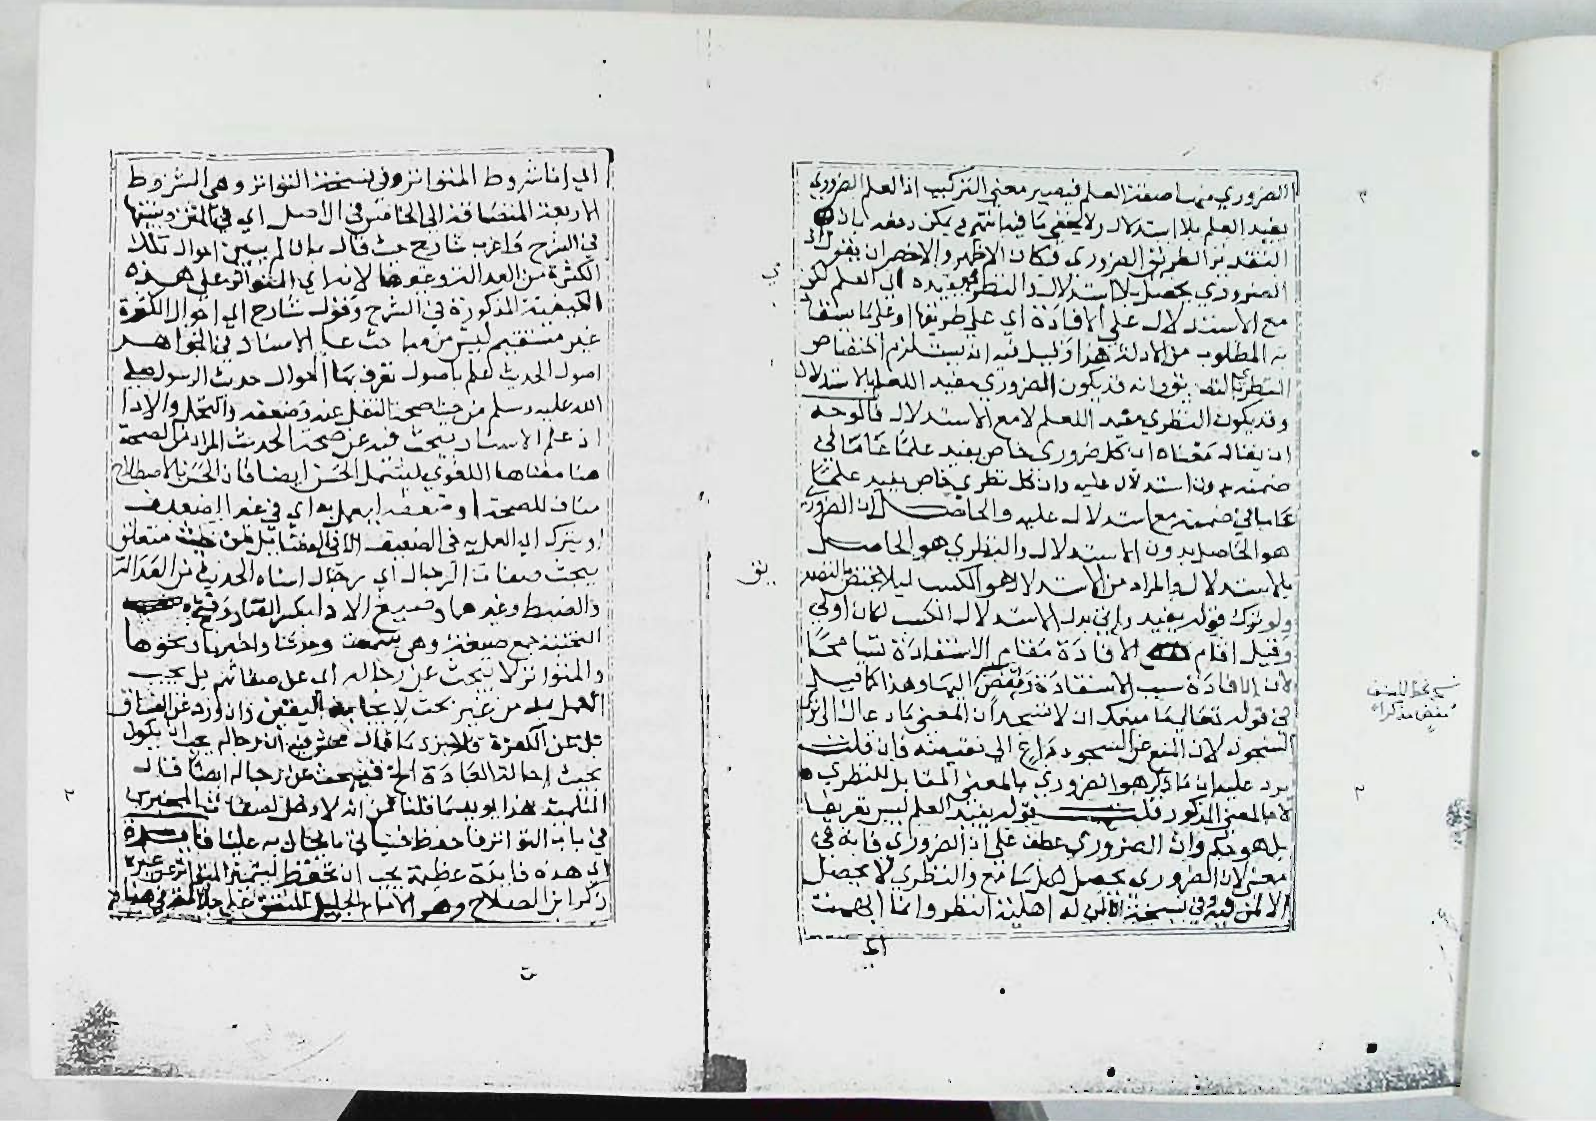 الضروري منها صفة العلم فيصير معنى التركيب اذ العلم الضروري
يفيد العلم بلا استدلال ولا يخفى ما فيه انتهى ويمكن دفعه بان
التقدير الطريق الضروري فكان الاظهر والاخصر ان يقول
الضروري يحصل بلا استدلال والنظري يفيده اي العلم لكن
مع الاستدلال على الافادة اي على طريقها او على ما يستفاد
به المطلوب من الادلة هذا وقيل فيه انه يستلزم اختصاص
النظري فانه قد يكون الضروري مفيد اللعلم بالاستدلال
وقد يكون النظري مفيد اللعلم لا مع الاستدلال فالوجه
ان يقال معناه ان كل ضروري خاص يفيد علما عاما في
ضمنه بدون استدلال عليه وان كل نظري خاص يفيد علما
عاما في ضمنه مع استدلال عليه والحاصل ان الضروري
هو الحاصل بدون الاستدلال والنظري هو الحاصل
بالاستدلال والمراد من الاستدلال هو الكسب ليلا يختص بالتصديق
ولو ترك قوله يفيد واتى بدل الاستدلال الكسب لكان اولى
وقيل اقام الافادة مقام الاستفادة تسامحا
لان الافادة سبب الاستفادة ومفض اليها وهذا كما قيل
في قوله تعالى ما منعك ان لا تسجد ان المعنى ما دعاك الى ترك
السجود لان المنع عن السجود داع الى نقيضه فان قلت
يرد عليه ان ما ذكر هو الضروري بالمعنى المقابل للنظري
لا بالمعنى المذكور قلت قوله يفيد العلم ليس تعريفا
بل هو حكم وان الضروري عطف على اذ الضروري فانه في
معنى لان الضروري يحصل لكل سامع والنظري لا يحصل
الا لمن فيه وفي نسخة الا لمن له اهلية النظر وانما ابهمت
اي
بخط المصنف
اي انما شروط المتواتر وفي نسخة التواتر وهي الشروط
الاربعة المنضافة الى الخامس في الاصل اي في المتن وبينتها
في الشرح واغرب شارح حيث قال بان لم يبين احوال تلك
الكثرة من العدالة وغيرها لانه اي المتواتر على هذه
الكيفية المذكورة في الشرح وقول شارح اي احوال الكثرة
غير مستقيم ليس من مباحث علم الاسناد في الجواهر
اصول الحديث علم باصول تعرف بها احوال حديث الرسول صلى
الله عليه وسلم من حيث صحة النقل عنه وضعفه والتحمل والاداء
اذ علم الاسناد يبحث فيه عن صحة الحديث المراد من الصحة
هنا معناها اللغوي ليشمل الحسن ايضا فان الحسن الاصطلاحي
مناف للصحة او ضعفه ليعمل به اي في غير الضعيف
او يترك اي العمل به في الضعيف الا في الفضائل من حيث متعلق
يبحث صفات الرجال اي رجال اسناد الحديث من العدالة
والضبط وغيرهما وصيغ الاداء بكسر الصاد وفتح
التحتية جمع صيغة وهي سمعت وحدثنا واخبرنا ونحوها
والمتواتر لا يبحث عن رجاله اي عن صفاتهم بل يجب
العمل به من غير بحث لايجابه اليقين وان ورد عن الفساق
بل عن الكفرة
بحيث احالة العادة الخ فيبحث عن رجاله ايضا قال
التلميذ هذا يؤيد ما قلنا من انه لا دخل لصفات المخبرين
في باب التواتر فاحفظ هنا لي ما يخالف به علينا فايدة
اي هذه فايدة عظيمة يجب ان تحفظ لتميز المتواتر عن غيره
ذكر ابن الصلاح وهو الامام الجليل المتفق على جلالته في هذا